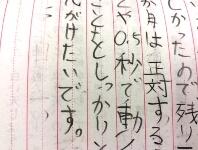 しかったので残り
か月は主対する
や0.5秒で動ノ
こともしっかりと
心がけたいです。